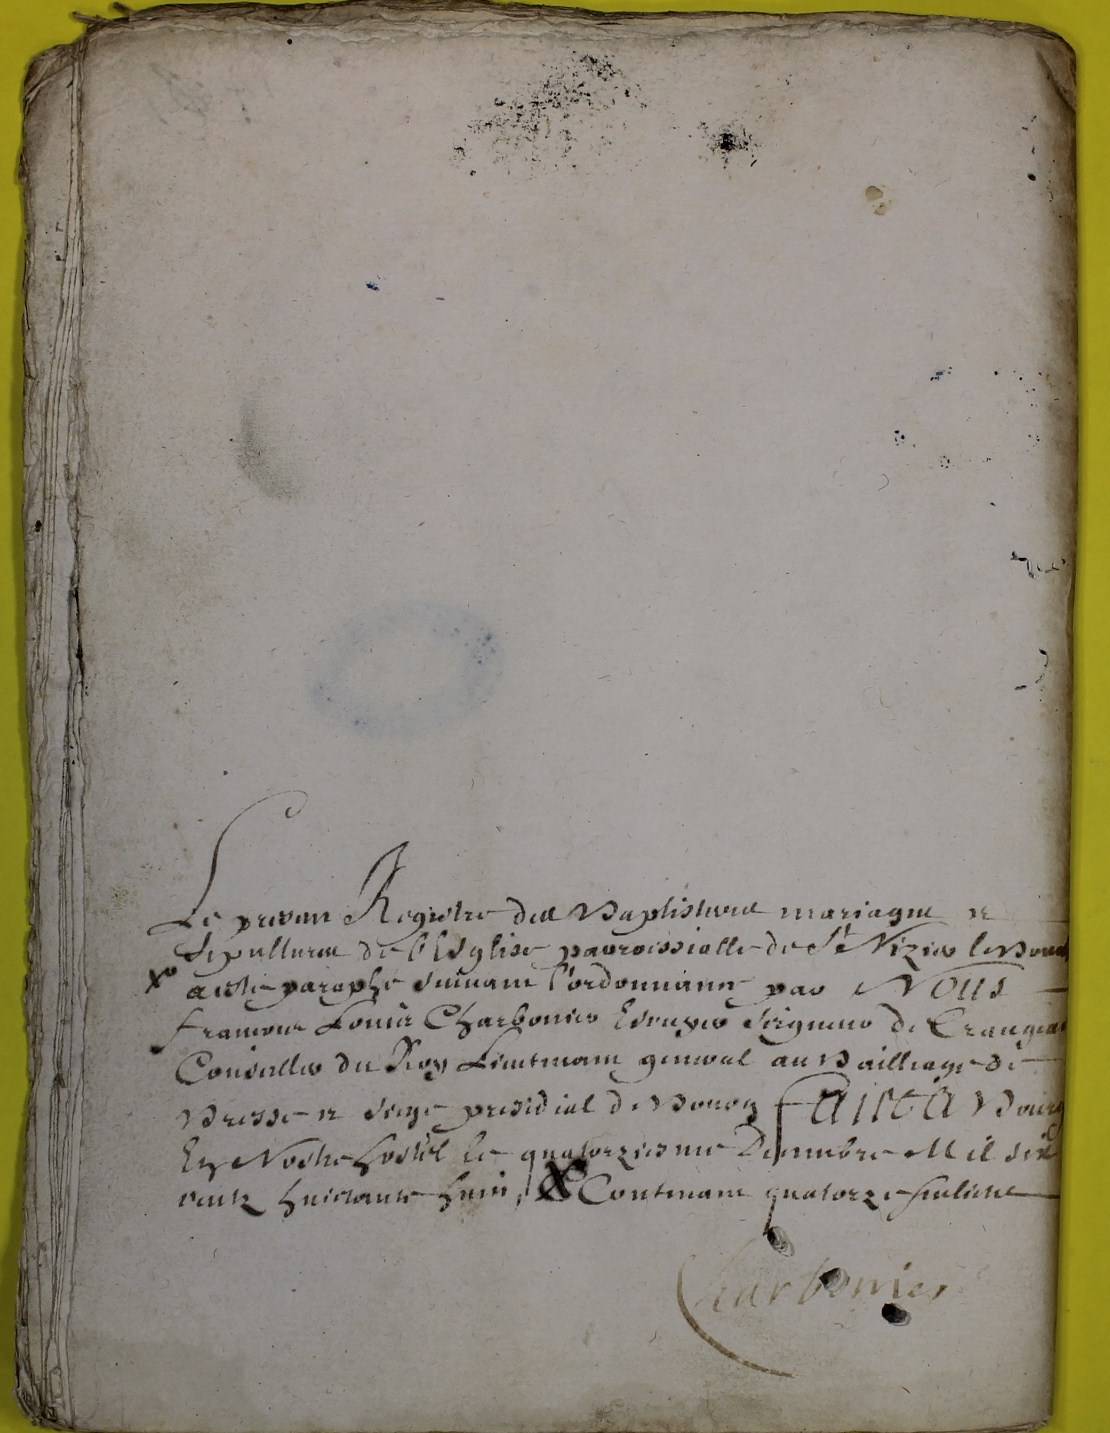 Le present Registre des Baptisteres mariages et
Sepultures de l'Esglise parroissialle de St Nizier le Bouch
a esté paraphé suiuant l'ordonnance par Nous
francois Louis Charbonier Escuyer Seigneur de Crangeac
Conseiller du Roy Lieutenant general au Bailliage de
Bresse et siege presidial de Bourg faict a Bourg
En Nostre hostel le quatorziesme Decembre Mil six
cents huictante huict, & Contenant quatorze feuliets
Charbonier